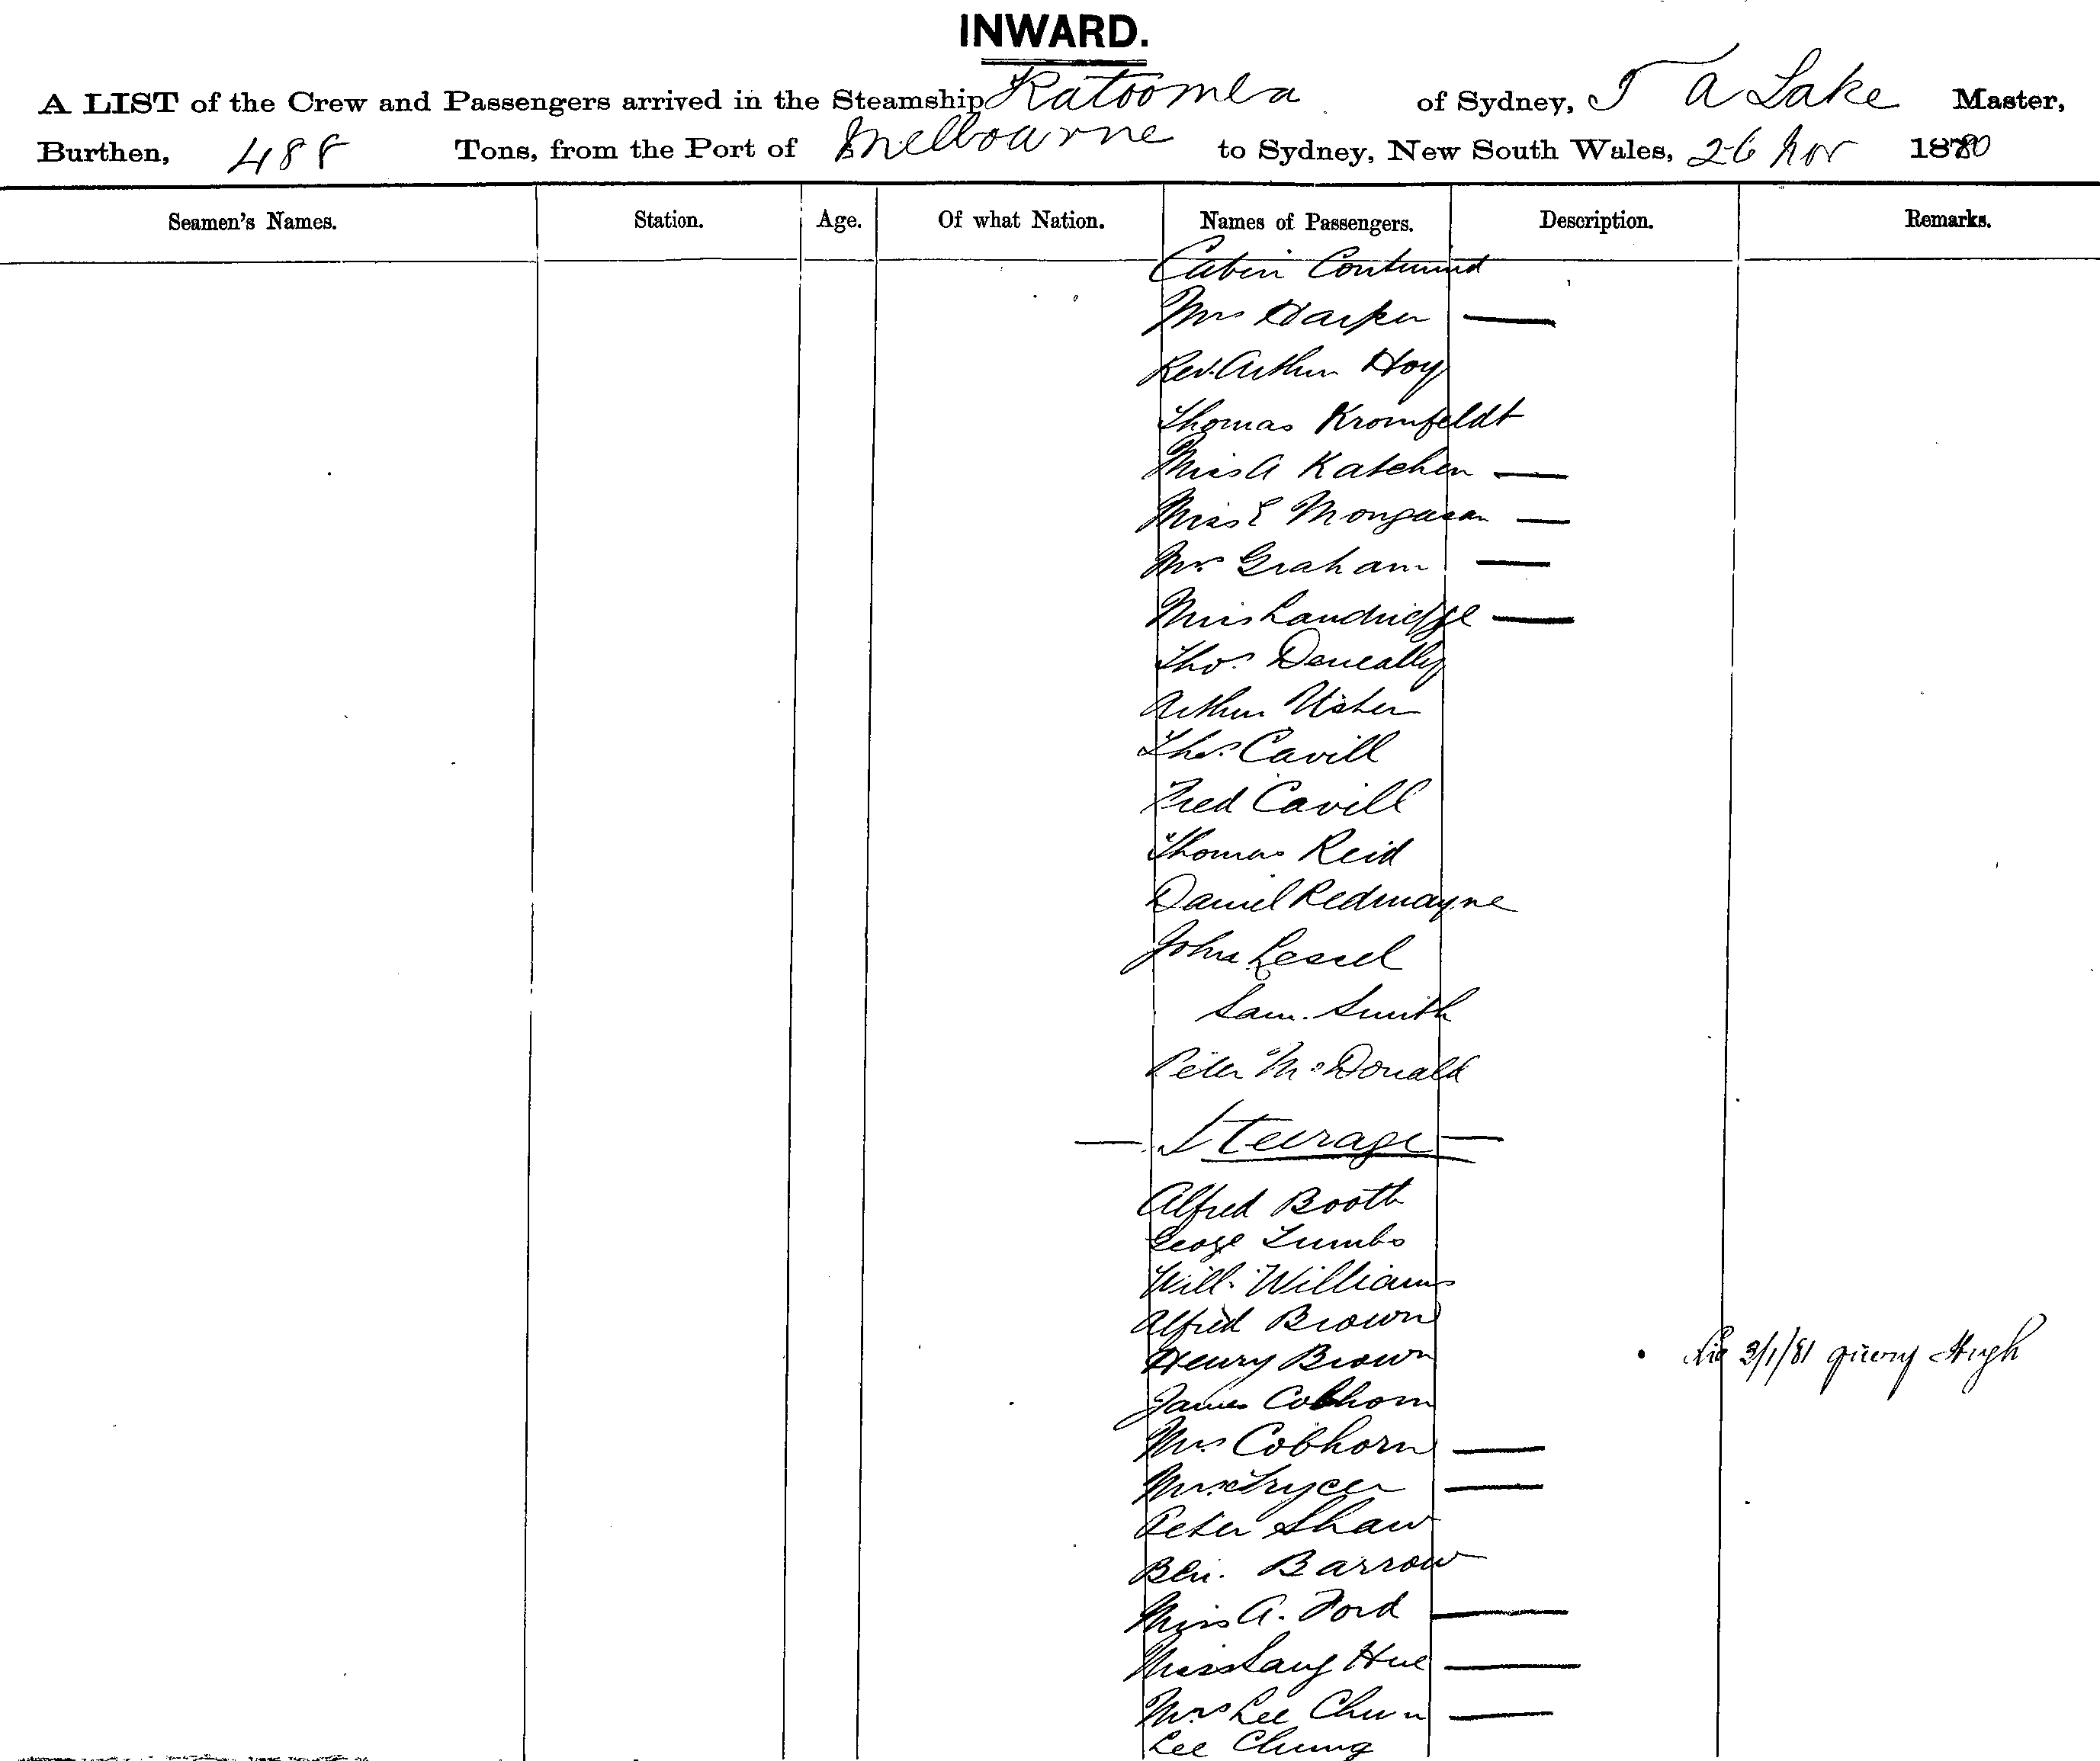 INWARD.
A LIST of the Crew and Passengers arrived in the Steamship Katoomba of Sydney, T A Lake Master,
Burthen, 488 Tons, from the Port of Melbourne to Sydney, New South Wales, 26 Nov 1880
Seamen's Names. Station. Age. Of what Nation. Names of Passengers. Description. Remarks.
Cabin Continued
Mrs Harper —
Rev. Arthur Hoy
Thomas Kromfeldt
Miss A Katchen —
Miss E —
Mrs Graham —
Miss Landridge —
Thos. Deneally
Arthur Usher
Thos. Cavill
Fred Cavill
Thomas Reid
Daniel Redmayne
John Lessel
Sam. Smith
Peter McDonald
— Steerage —
Alfred Booth
George Lumbs
Will. Williams
Alfred Brown
Henry Brown
3/1/81 query Hugh
James Cobhorn
Mrs Cobhorn —
Mrs —
Peter Shaw
Ben. Barrow
Miss A. Ford —
Miss Hue —
Mrs Lee Chun —
Lee Chung